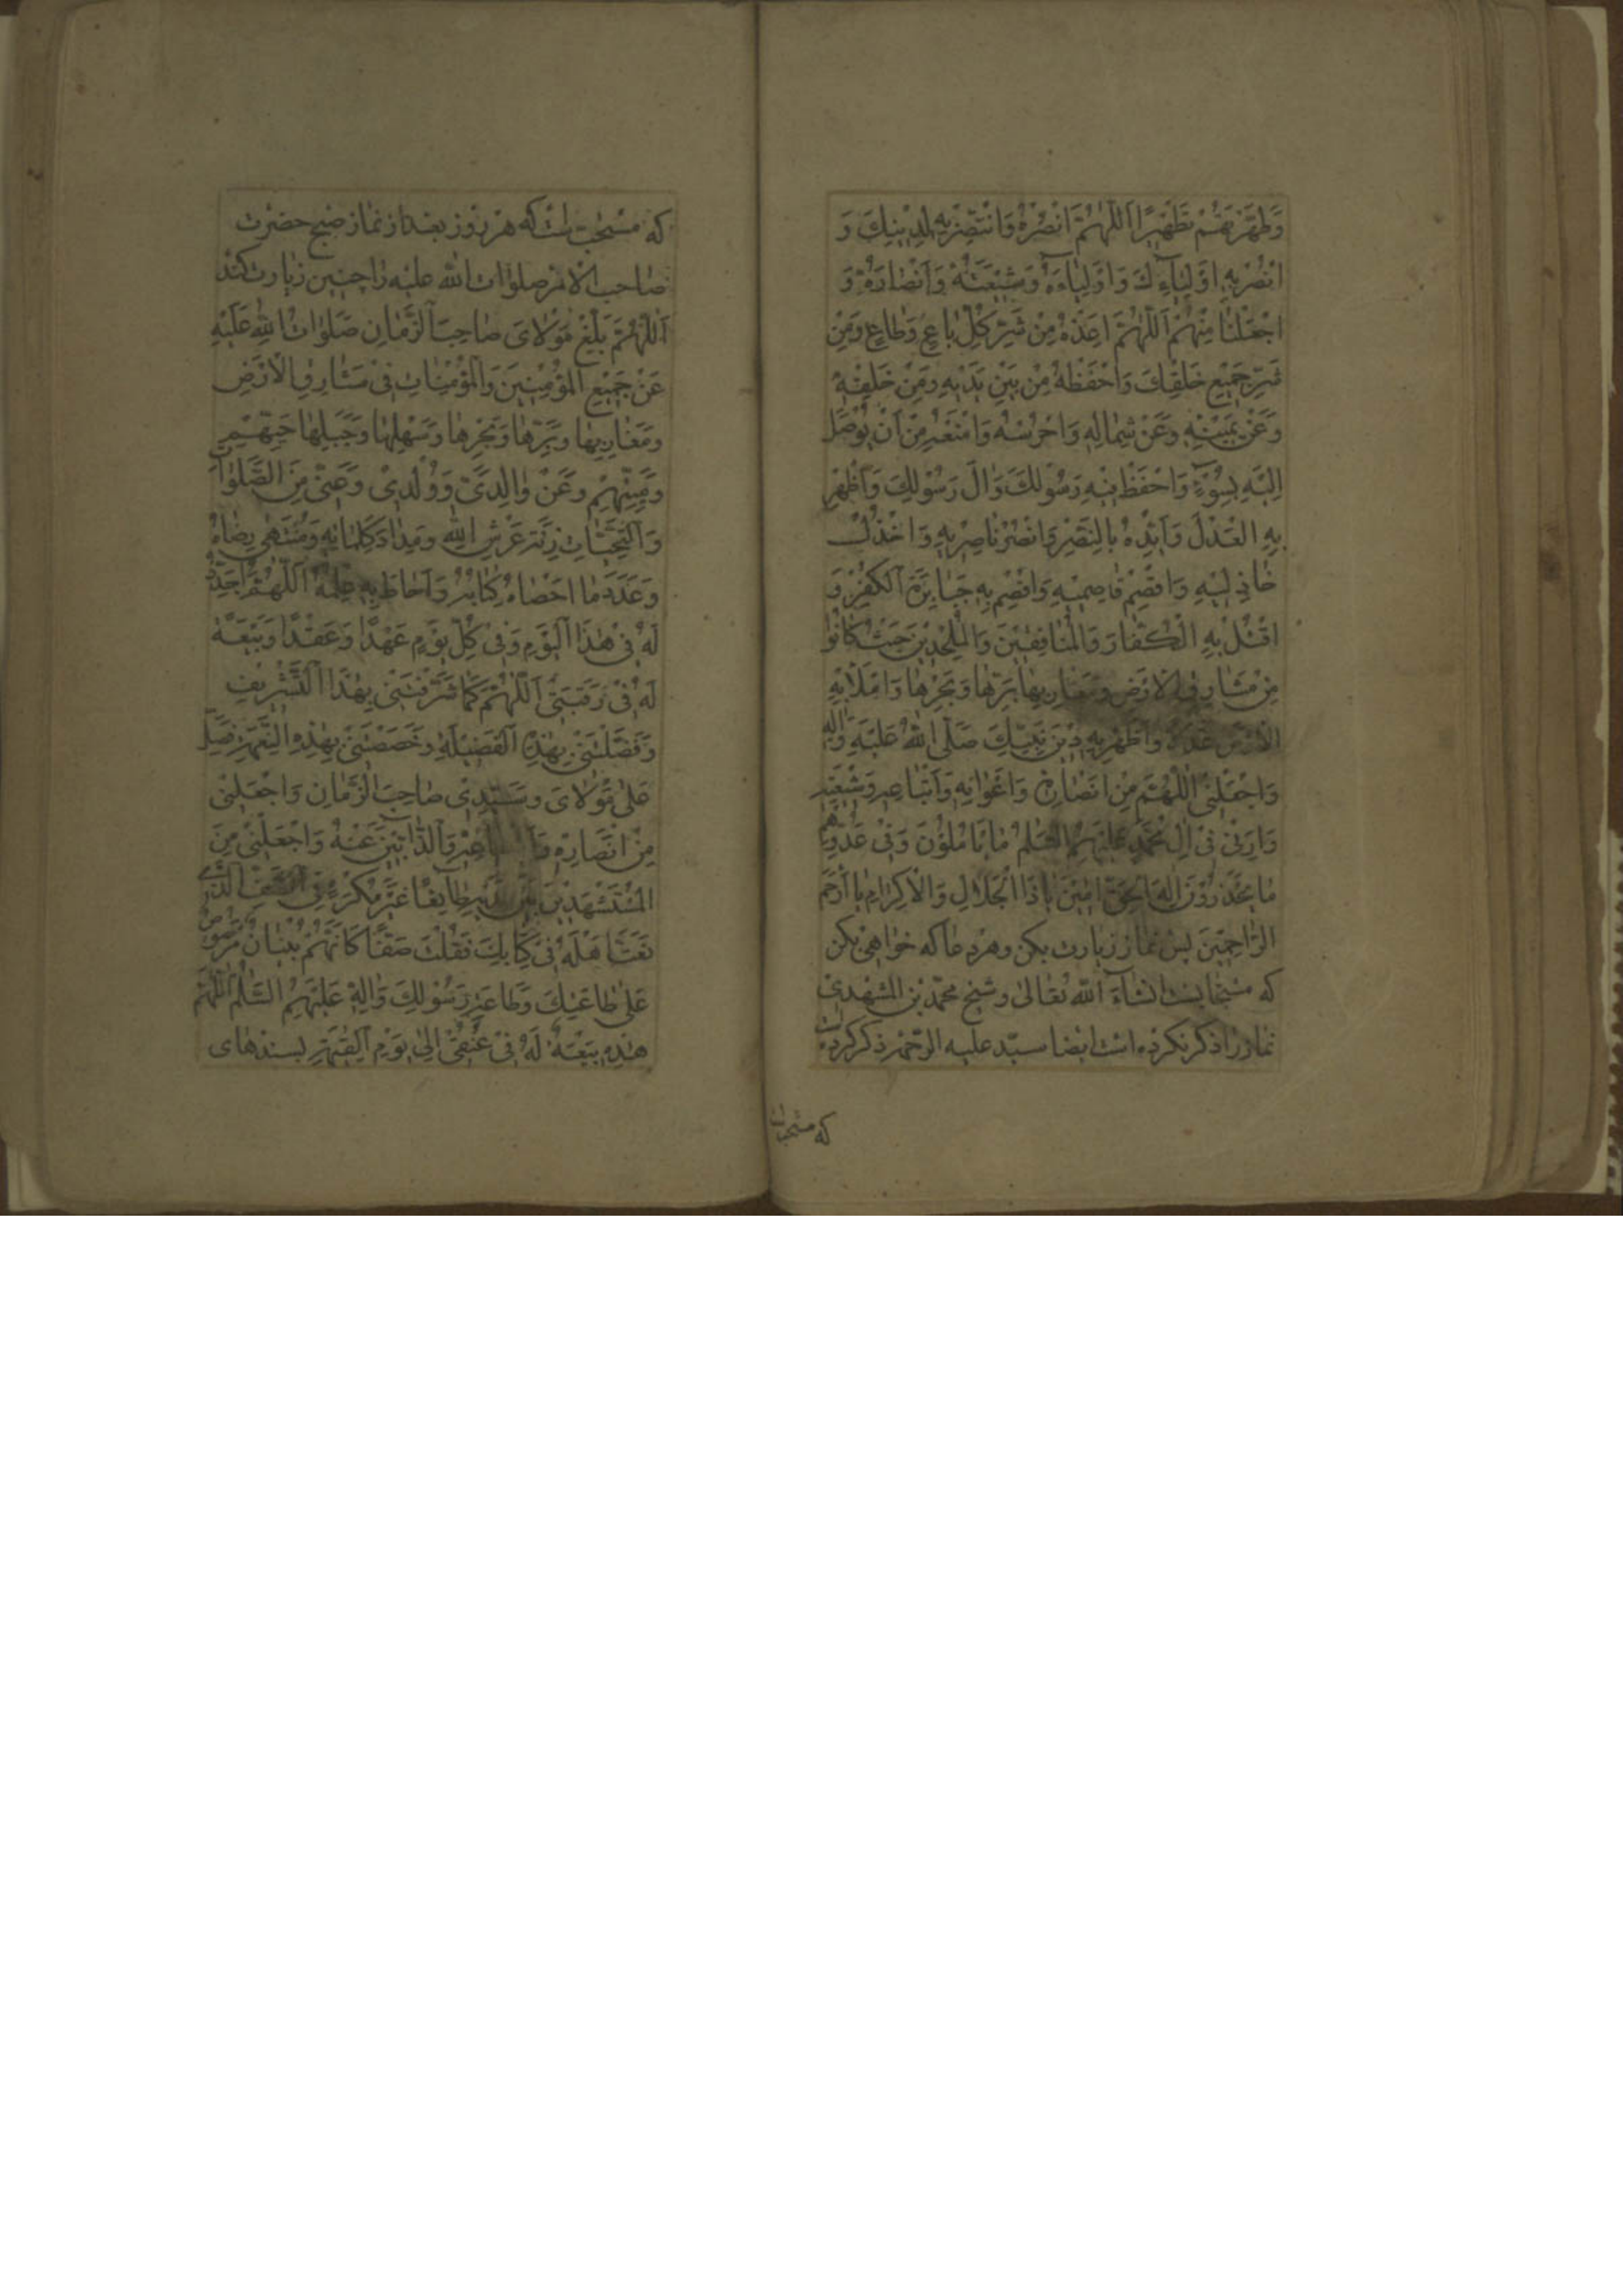 وَطَهَّرْتَهُمْ تَطْهِيرًا اَللّٰهُمَّ انْصُرْهُ وَانْتَصِرْ بِهِ لِدِيْنِكَ وَ
انْصُرْ بِهِ اَوْلِيَآءَكَ وَاَوْلِيَآءَهُ وَشِيْعَتَهُ وَاَنْصَارَهُ وَ
اجْعَلْنَا مِنْهُمْ اَللّٰهُمَّ اَعِذْهُ مِنْ شَرِّ كُلِّ بَاغٍ وَطَاغٍ وَمِنْ
شَرِّ جَمِيْعِ خَلْقِكَ وَاحْفَظْهُ مِنْ بَيْنِ يَدَيْهِ وَمِنْ خَلْفِهِ
وَعَنْ يَمِيْنِهِ وَعَنْ شِمَالِهِ وَاحْرُسْهُ وَامْنَعْهُ مِنْ اَنْ يُوْصَلَ
اِلَيْهِ بِسُوْءٍ وَاحْفَظْ فِيْهِ رَسُوْلَكَ وَاٰلَ رَسُوْلِكَ وَاَظْهِرْ
بِهِ الْعَدْلَ وَاَيِّدْهُ بِالنَّصْرِ وَانْصُرْ نَاصِرِيْهِ وَاخْذُلْ
خَاذِلِيْهِ وَاقْصِمْ قَاصِمِيْهِ وَاقْصِمْ بِهِ جَبَابِرَةَ الْكُفْرِ وَ
اقْتُلْ بِهِ الْكُفَّارَ وَالْمُنَافِقِيْنَ وَالْمُلْحِدِيْنَ حَيْثُ كَانُوْا
مِنْ مَشَارِقِ الْاَرْضِ وَمَغَارِبِهَا بَرِّهَا وَبَحْرِهَا وَامْلَأْ بِهِ
الْاَرْضَ عَدْلًا وَاَظْهِرْ بِهِ دِيْنَ نَبِيِّكَ صَلَّى اللهُ عَلَيْهِ وَاٰلِهِ
وَاجْعَلْنِيْ اَللّٰهُمَّ مِنْ اَنْصَارِهِ وَاَعْوَانِهِ وَاَتْبَاعِهِ وَشِيْعَتِهِ
وَاَرِنِيْ فِيْ اٰلِ مُحَمَّدٍ عَلَيْهِمُ السَّلٰمُ مَا يَأْمُلُوْنَ وَفِيْ عَدُوِّهِمْ
مَا يَحْذَرُوْنَ اِلٰهَ الْحَقِّ اٰمِيْنَ يَا ذَا الْجَلَالِ وَالْاِكْرَامِ يَا اَرْحَمَ
الرَّاحِمِيْنَ پس نماز زيارت بكن وهر دعا كه خواهى بكن
كه مستجابست انشآء الله تعالى وشيخ محمد بن المشهدى
نماز را ذكر نكرده است ايضا سيد عليه الرحمه ذكر كرده
كه مستحب است
كه مستحب است كه هر روز بعد از نماز صبح حضرت
صاحب الامر صلوات الله عليه را چنين زيارت كند
اَللّٰهُمَّ بَلِّغْ مَوْلَايَ صَاحِبَ الزَّمَانِ صَلَوَاتُ اللهِ عَلَيْهِ
عَنْ جَمِيْعِ الْمُؤْمِنِيْنَ وَالْمُؤْمِنَاتِ فِيْ مَشَارِقِ الْاَرْضِ
وَمَغَارِبِهَا وَبَرِّهَا وَبَحْرِهَا وَسَهْلِهَا وَجَبَلِهَا حَيِّهِمْ
وَمَيِّتِهِمْ وَعَنْ وَالِدَيَّ وَوُلْدِيْ وَعَنِّيْ مِنَ الصَّلَوَاتِ
وَالتَّحِيَّاتِ زِنَةَ عَرْشِ اللهِ وَمِدَادَ كَلِمَاتِهِ وَمُنْتَهٰى رِضَاهُ
وَعَدَدَ مَا اَحْصَاهُ كِتَابُهُ وَاَحَاطَ بِهِ عِلْمُهُ اَللّٰهُمَّ اُجَدِّدُ
لَهُ فِيْ هٰذَا الْيَوْمِ وَفِيْ كُلِّ يَوْمٍ عَهْدًا وَعَقْدًا وَبَيْعَةً
لَهُ فِيْ رَقَبَتِيْ اَللّٰهُمَّ كَمَا شَرَّفْتَنِيْ بِهٰذَا التَّشْرِيْفِ
وَفَضَّلْتَنِيْ بِهٰذِهِ الْفَضِيْلَةِ وَخَصَصْتَنِيْ بِهٰذِهِ النِّعْمَةِ فَصَلِّ
عَلٰى مَوْلَايَ وَسَيِّدِيْ صَاحِبِ الزَّمَانِ وَاجْعَلْنِيْ
مِنْ اَنْصَارِهِ وَالذَّابِّيْنَ عَنْهُ وَاجْعَلْنِيْ مِنَ
الْمُسْتَشْهَدِيْنَ بَيْنَ يَدَيْهِ طَآئِعًا غَيْرَ مُكْرَهٍ فِي الصَّفِّ الَّذِيْ
نَعَتَّ اَهْلَهُ فِيْ كِتَابِكَ فَقُلْتَ صَفًّا كَاَنَّهُمْ بُنْيَانٌ مَرْصُوْصٌ
عَلٰى طَاعَتِكَ وَطَاعَةِ رَسُوْلِكَ وَاٰلِهِ عَلَيْهِمُ السَّلٰمُ اَللّٰهُمَّ
هٰذِهِ بَيْعَةٌ لَهُ فِيْ عُنُقِيْ اِلٰى يَوْمِ الْقِيٰمَةِ بسندهاى